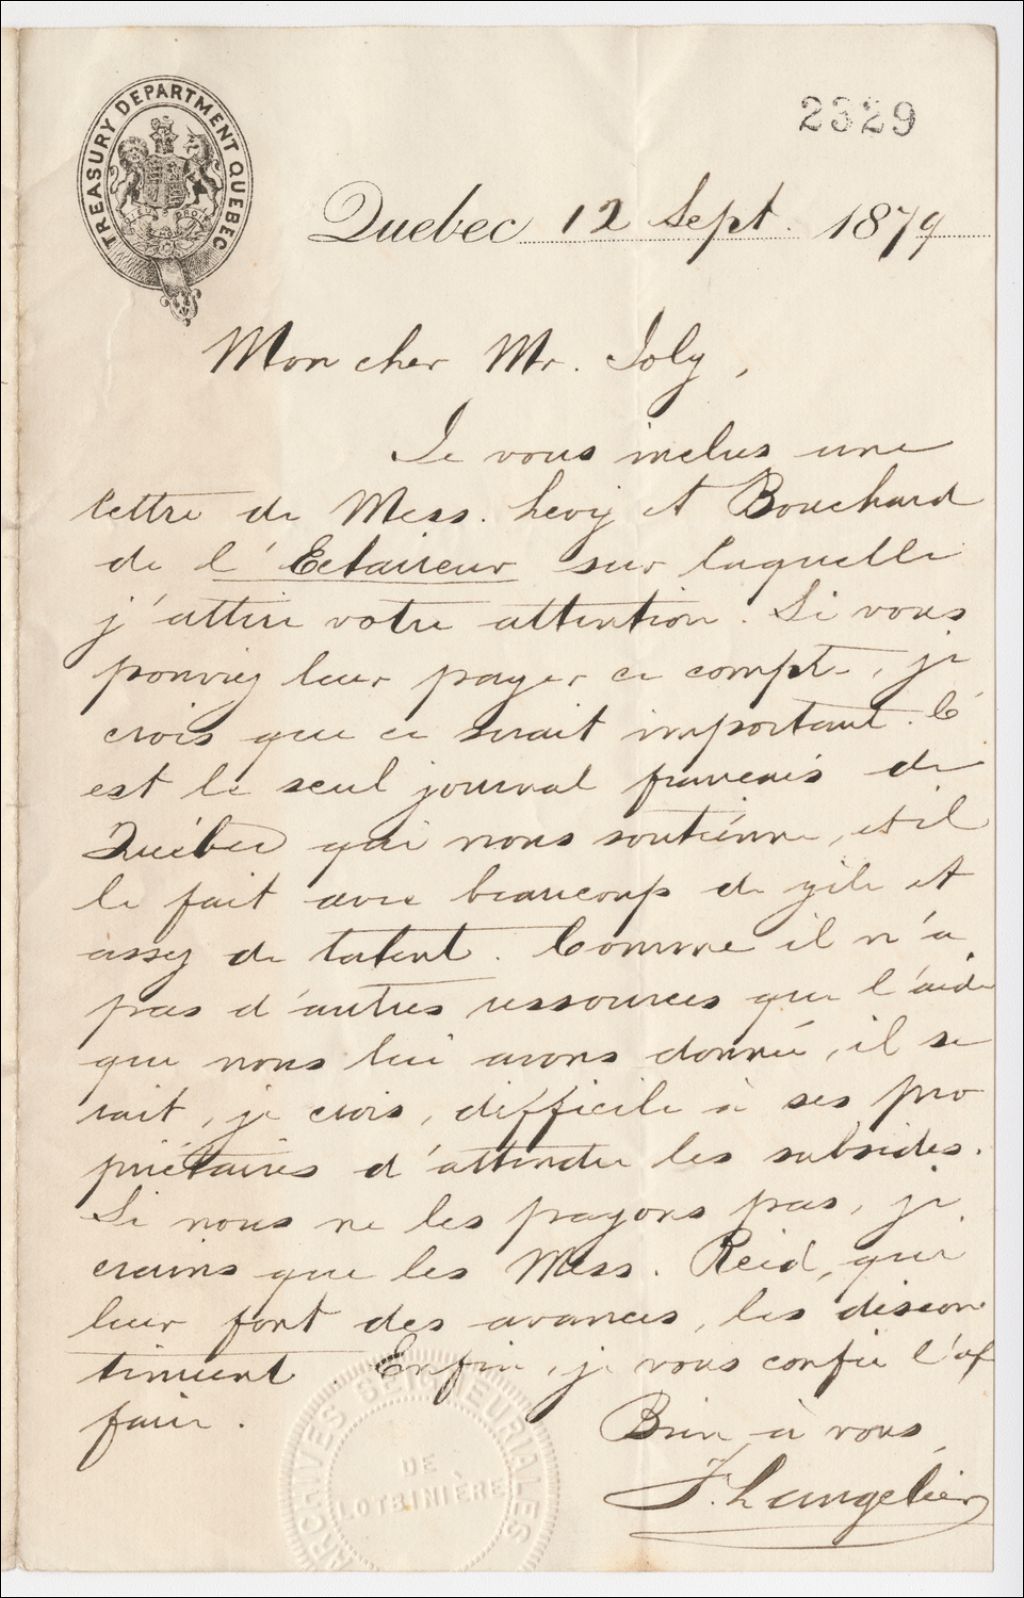 TREASURY DEPARTMENT QUEBEC
2329
Quebec 12 Sept. 1879
Mon cher Mr. Joly,
Je vous inclus une
lettre de Mess. Levy et Bouchard
de l'Eclaireur sur laquelle
j'attire votre attention. Si vous
pouviez leur payer ce compte, je
crois que ce serait important. C'
est le seul journal français de
Québec qui nous soutienne, et il
le fait avec beaucoup de zèle et
assez de talent. Comme il n'a
pas d'autres ressources que l'aide
que nous lui avons donnée, il se
rait, je crois, difficile à ses pro
priétaires d'attendre les subsides.
Si nous ne les payons pas, je
crains que les Mess. Reid, qui
leur font des avances, les discon
tinuent. Enfin, je vous confie l'af
faire.
Bien à vous,
F. Langelier
ARCHIVES SEIGNEURIALES
DE
LOTBINIÈRE